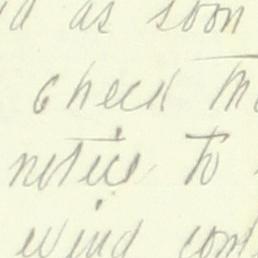 as soon
check
notice to
wind